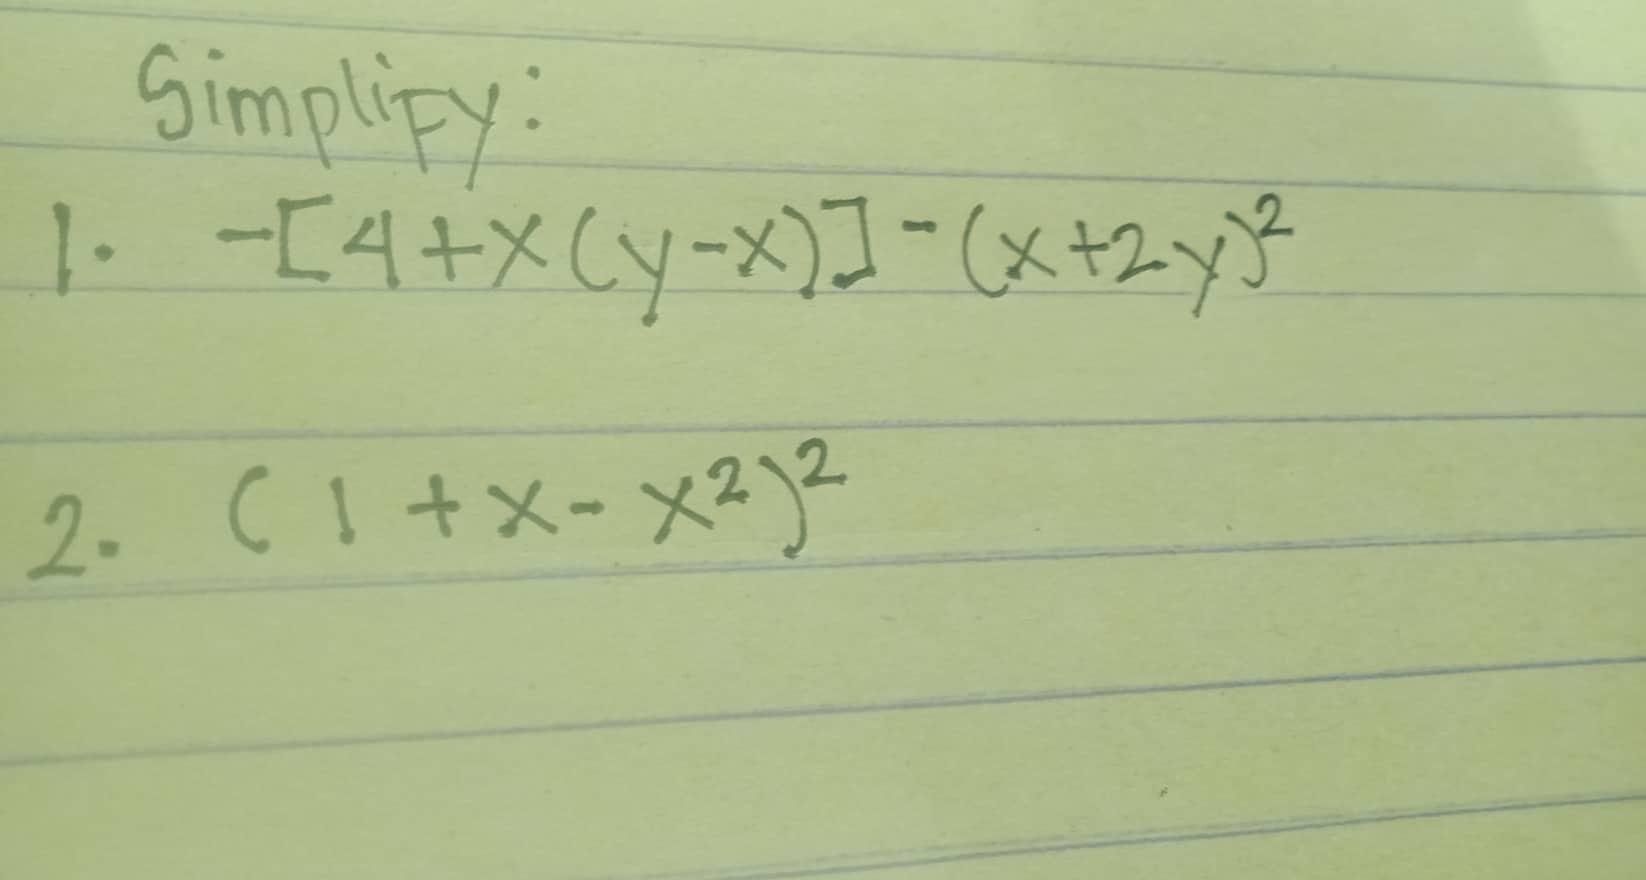 Simplify:
1. -[4+x(y-x)]-(x+2y)²
2. (1+x-x²)²